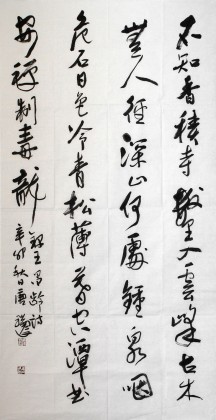 不知香積寺數里入雲峰古木
無人徑深山何處鐘泉咽
危石日色冷青松薄暮空潭曲
安禪制毒龍
錄王昌齡詩
辛卯秋日唐